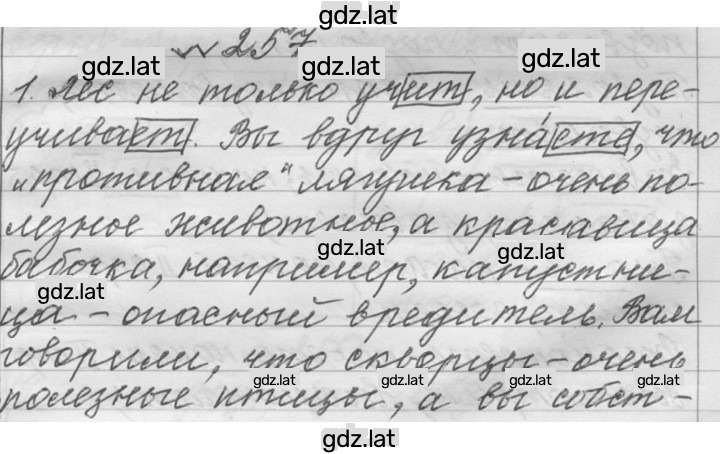 gdz.lat
№ 257
gdz.lat gdz.lat gdz.lat
1. Лес не только учит, но и пере-
учивает. Вы вдруг узна́ете, что
„противная" лягушка – очень по-
лезное животное, а красавица
gdz.lat gdz.lat
бабочка, например, капустни-
gdz.lat
ца – опасный вредитель. Вам
говорили, что скворцы – очень
gdz.lat gdz.lat gdz.lat gdz.lat
полезные птицы, а вы собст-
gdz.lat